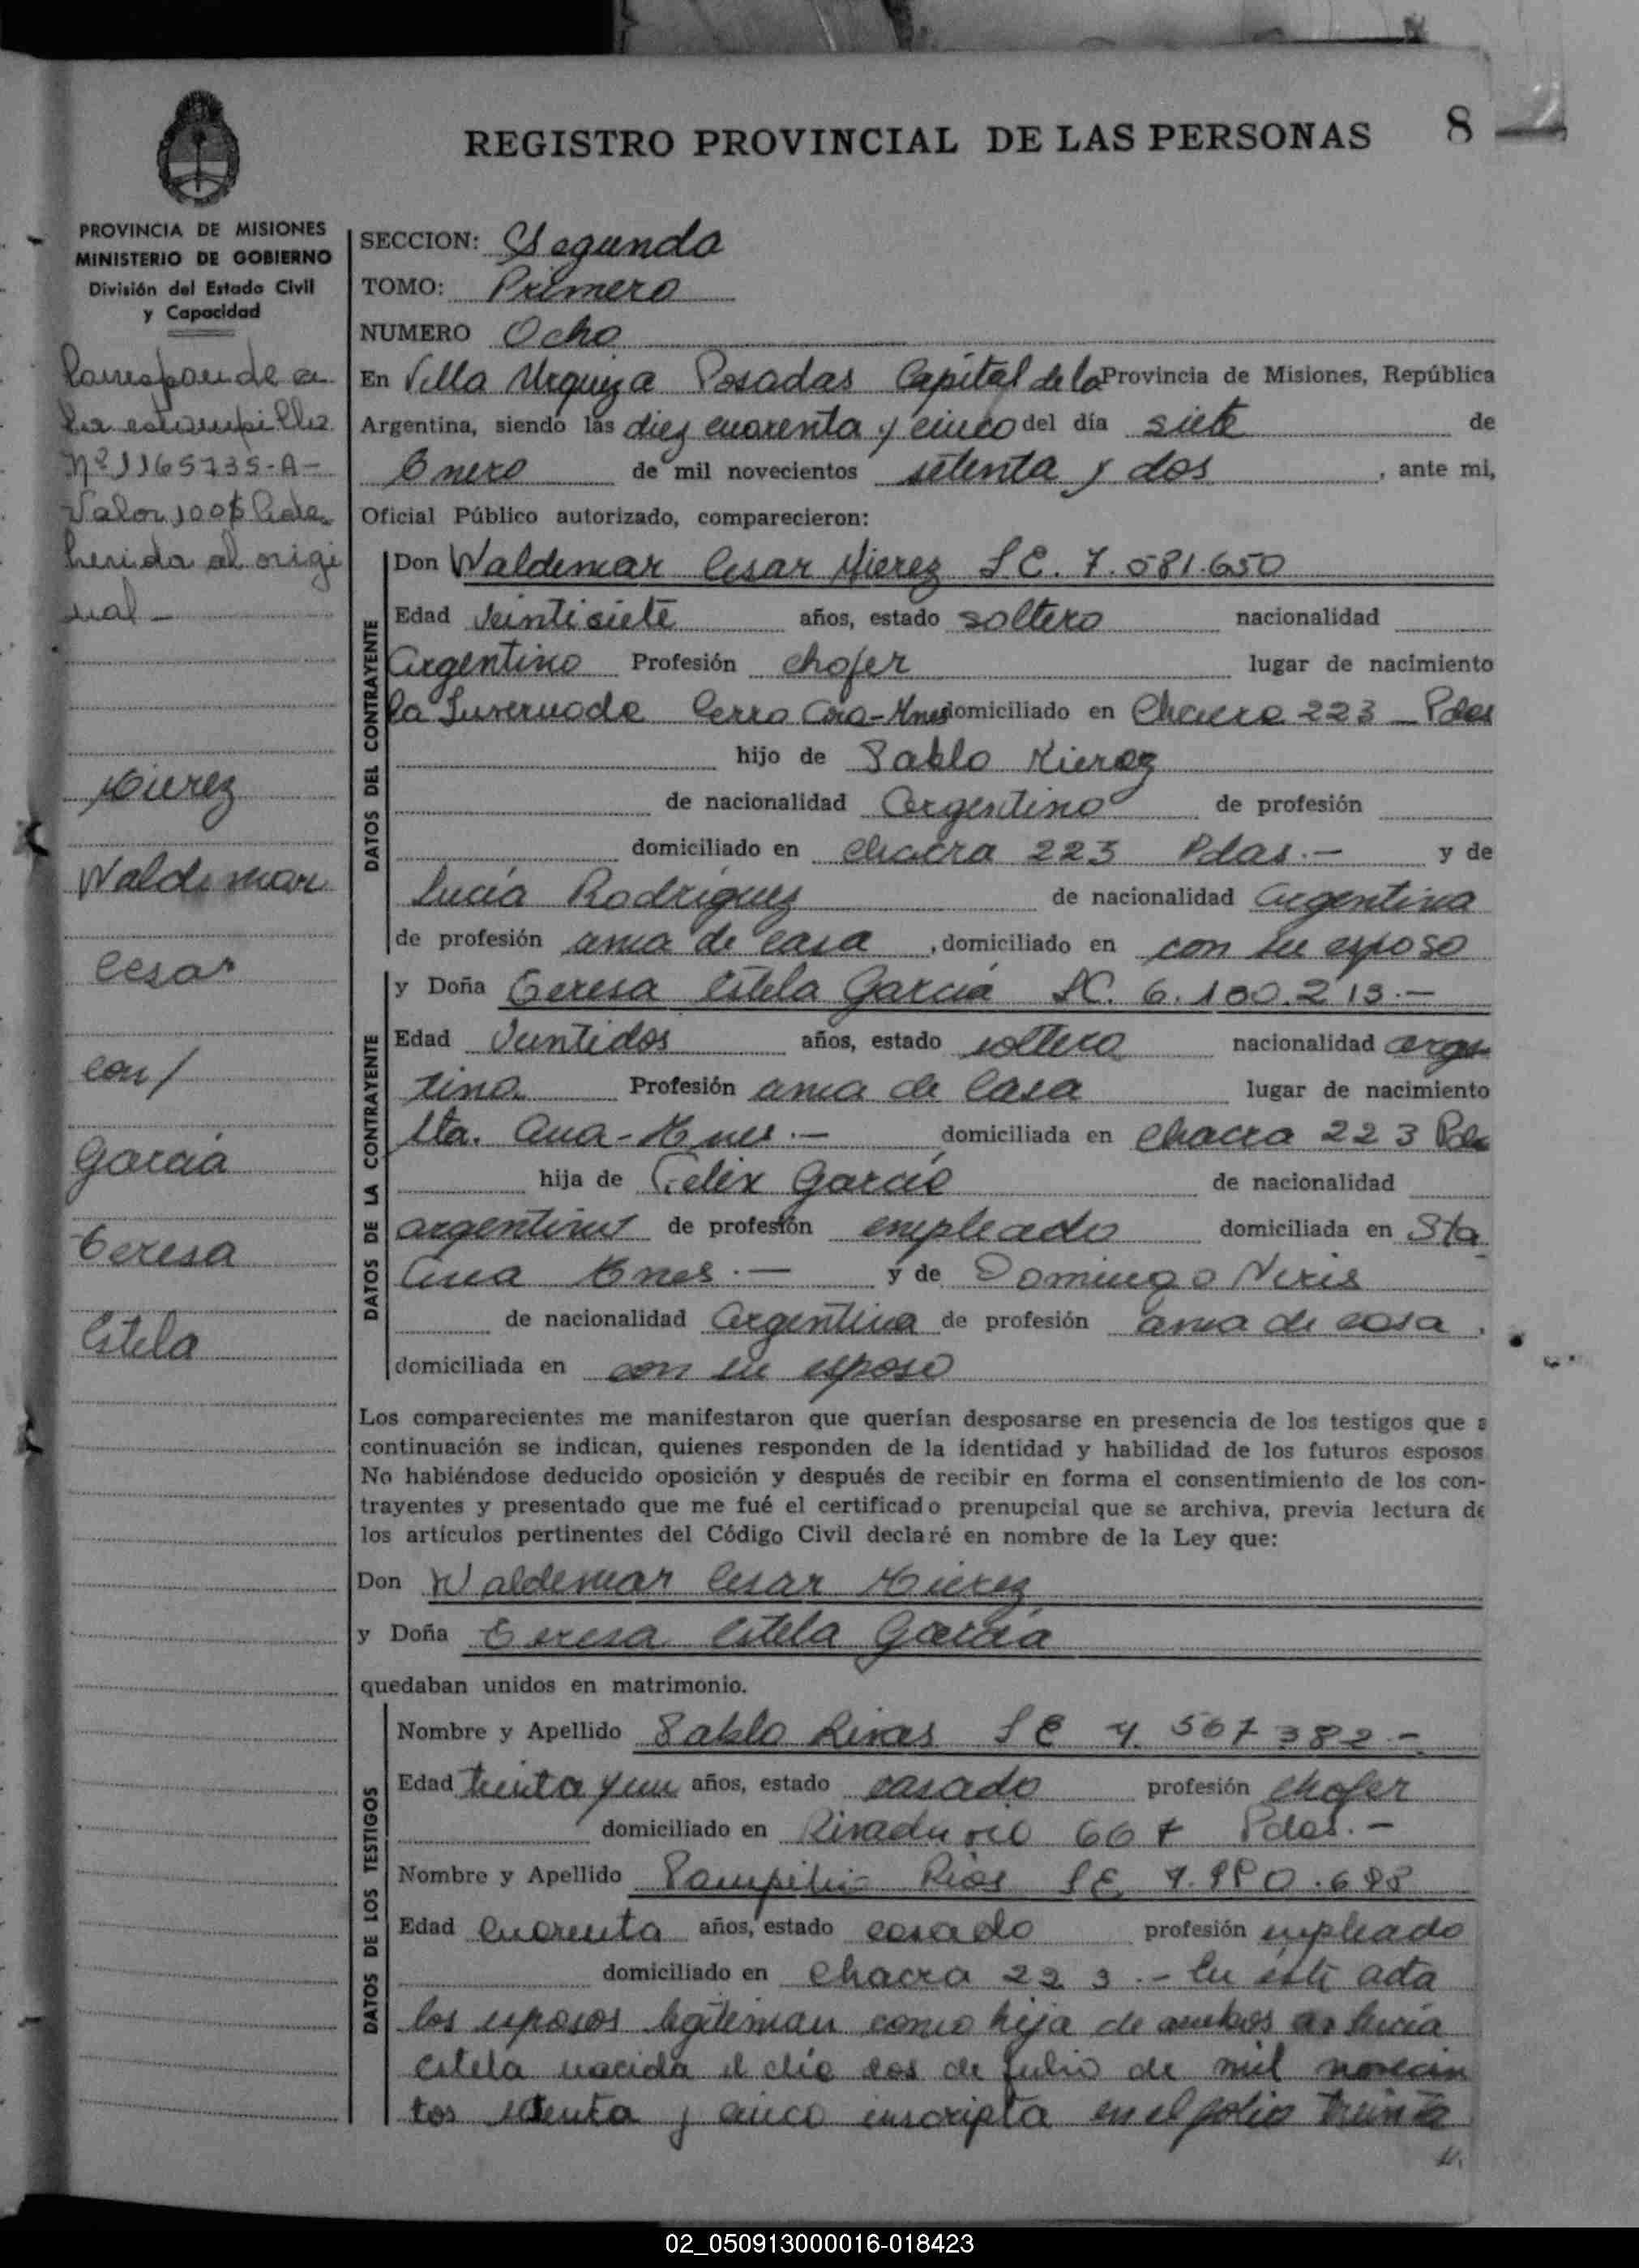 REGISTRO PROVINCIAL DE LAS PERSONAS 8
PROVINCIA DE MISIONES
MINISTERIO DE GOBIERNO
División del Estado Civil
y Capacidad
Corresponde a
la estampilla
Nº 1165735-A-
Valor 100$ Ade
herida al origi
nal -
Mierez
Waldemar
Cesar
con/
Garcia
Teresa
Estela
SECCION: Segunda
TOMO: Primero
NUMERO Ocho
En Villa Urquiza Posadas Capital de la Provincia de Misiones, República
Argentina, siendo las diez cuarenta y cinco del día siete de
Enero de mil novecientos setenta y dos, ante mi,
Oficial Público autorizado, comparecieron:
DATOS DEL CONTRAYENTE
Don Waldemar Cesar Mierez L.E. 7.581.650
Edad Veintisiete años, estado soltero nacionalidad
argentino Profesión chofer lugar de nacimiento
la Invernada Cerro Cora-Mnes domiciliado en Chacra 223 - Pdas
hijo de Pablo Mierez
de nacionalidad Argentino de profesión
domiciliado en chacra 223 Pdas.- y de
Lucia Rodriguez de nacionalidad argentina
de profesión ama de casa, domiciliado en con su esposo
DATOS DE LA CONTRAYENTE
y Doña Teresa Estela Garcia LC. 6.180.213.-
Edad Veintidos años, estado soltera nacionalidad argen
tina Profesión ama de casa lugar de nacimiento
Sta. Ana-Mnes.- domiciliada en Chacra 223 Pdas
hija de Felix Garcia de nacionalidad
argentino de profesión empleado domiciliada en Sta
Ana Mnes.- y de Dominga Niris
de nacionalidad Argentina de profesión ama de casa,
domiciliada en con su esposo
Los comparecientes me manifestaron que querían desposarse en presencia de los testigos que a
continuación se indican, quienes responden de la identidad y habilidad de los futuros esposos
No habiéndose deducido oposición y después de recibir en forma el consentimiento de los con-
trayentes y presentado que me fué el certificado prenupcial que se archiva, previa lectura de
los artículos pertinentes del Código Civil declaré en nombre de la Ley que:
Don Waldemar Cesar Mierez
y Doña Teresa Estela Garcia
quedaban unidos en matrimonio.
DATOS DE LOS TESTIGOS
Nombre y Apellido Pablo Rivas LE 4.567382.-
Edad treinta y un años, estado casado profesión chofer
domiciliado en 667 Pdas.-
Nombre y Apellido Pampilio Rios LE
Edad Cuarenta años, estado casado profesión empleado
domiciliado en Chacra 223.- En este acta
los esposos legitiman como hija de ambos a Lucia
Estela nacida el día dos de julio de mil novecien
tos y cinco inscripta en el folio treinta
//.
02_050913000016-018423